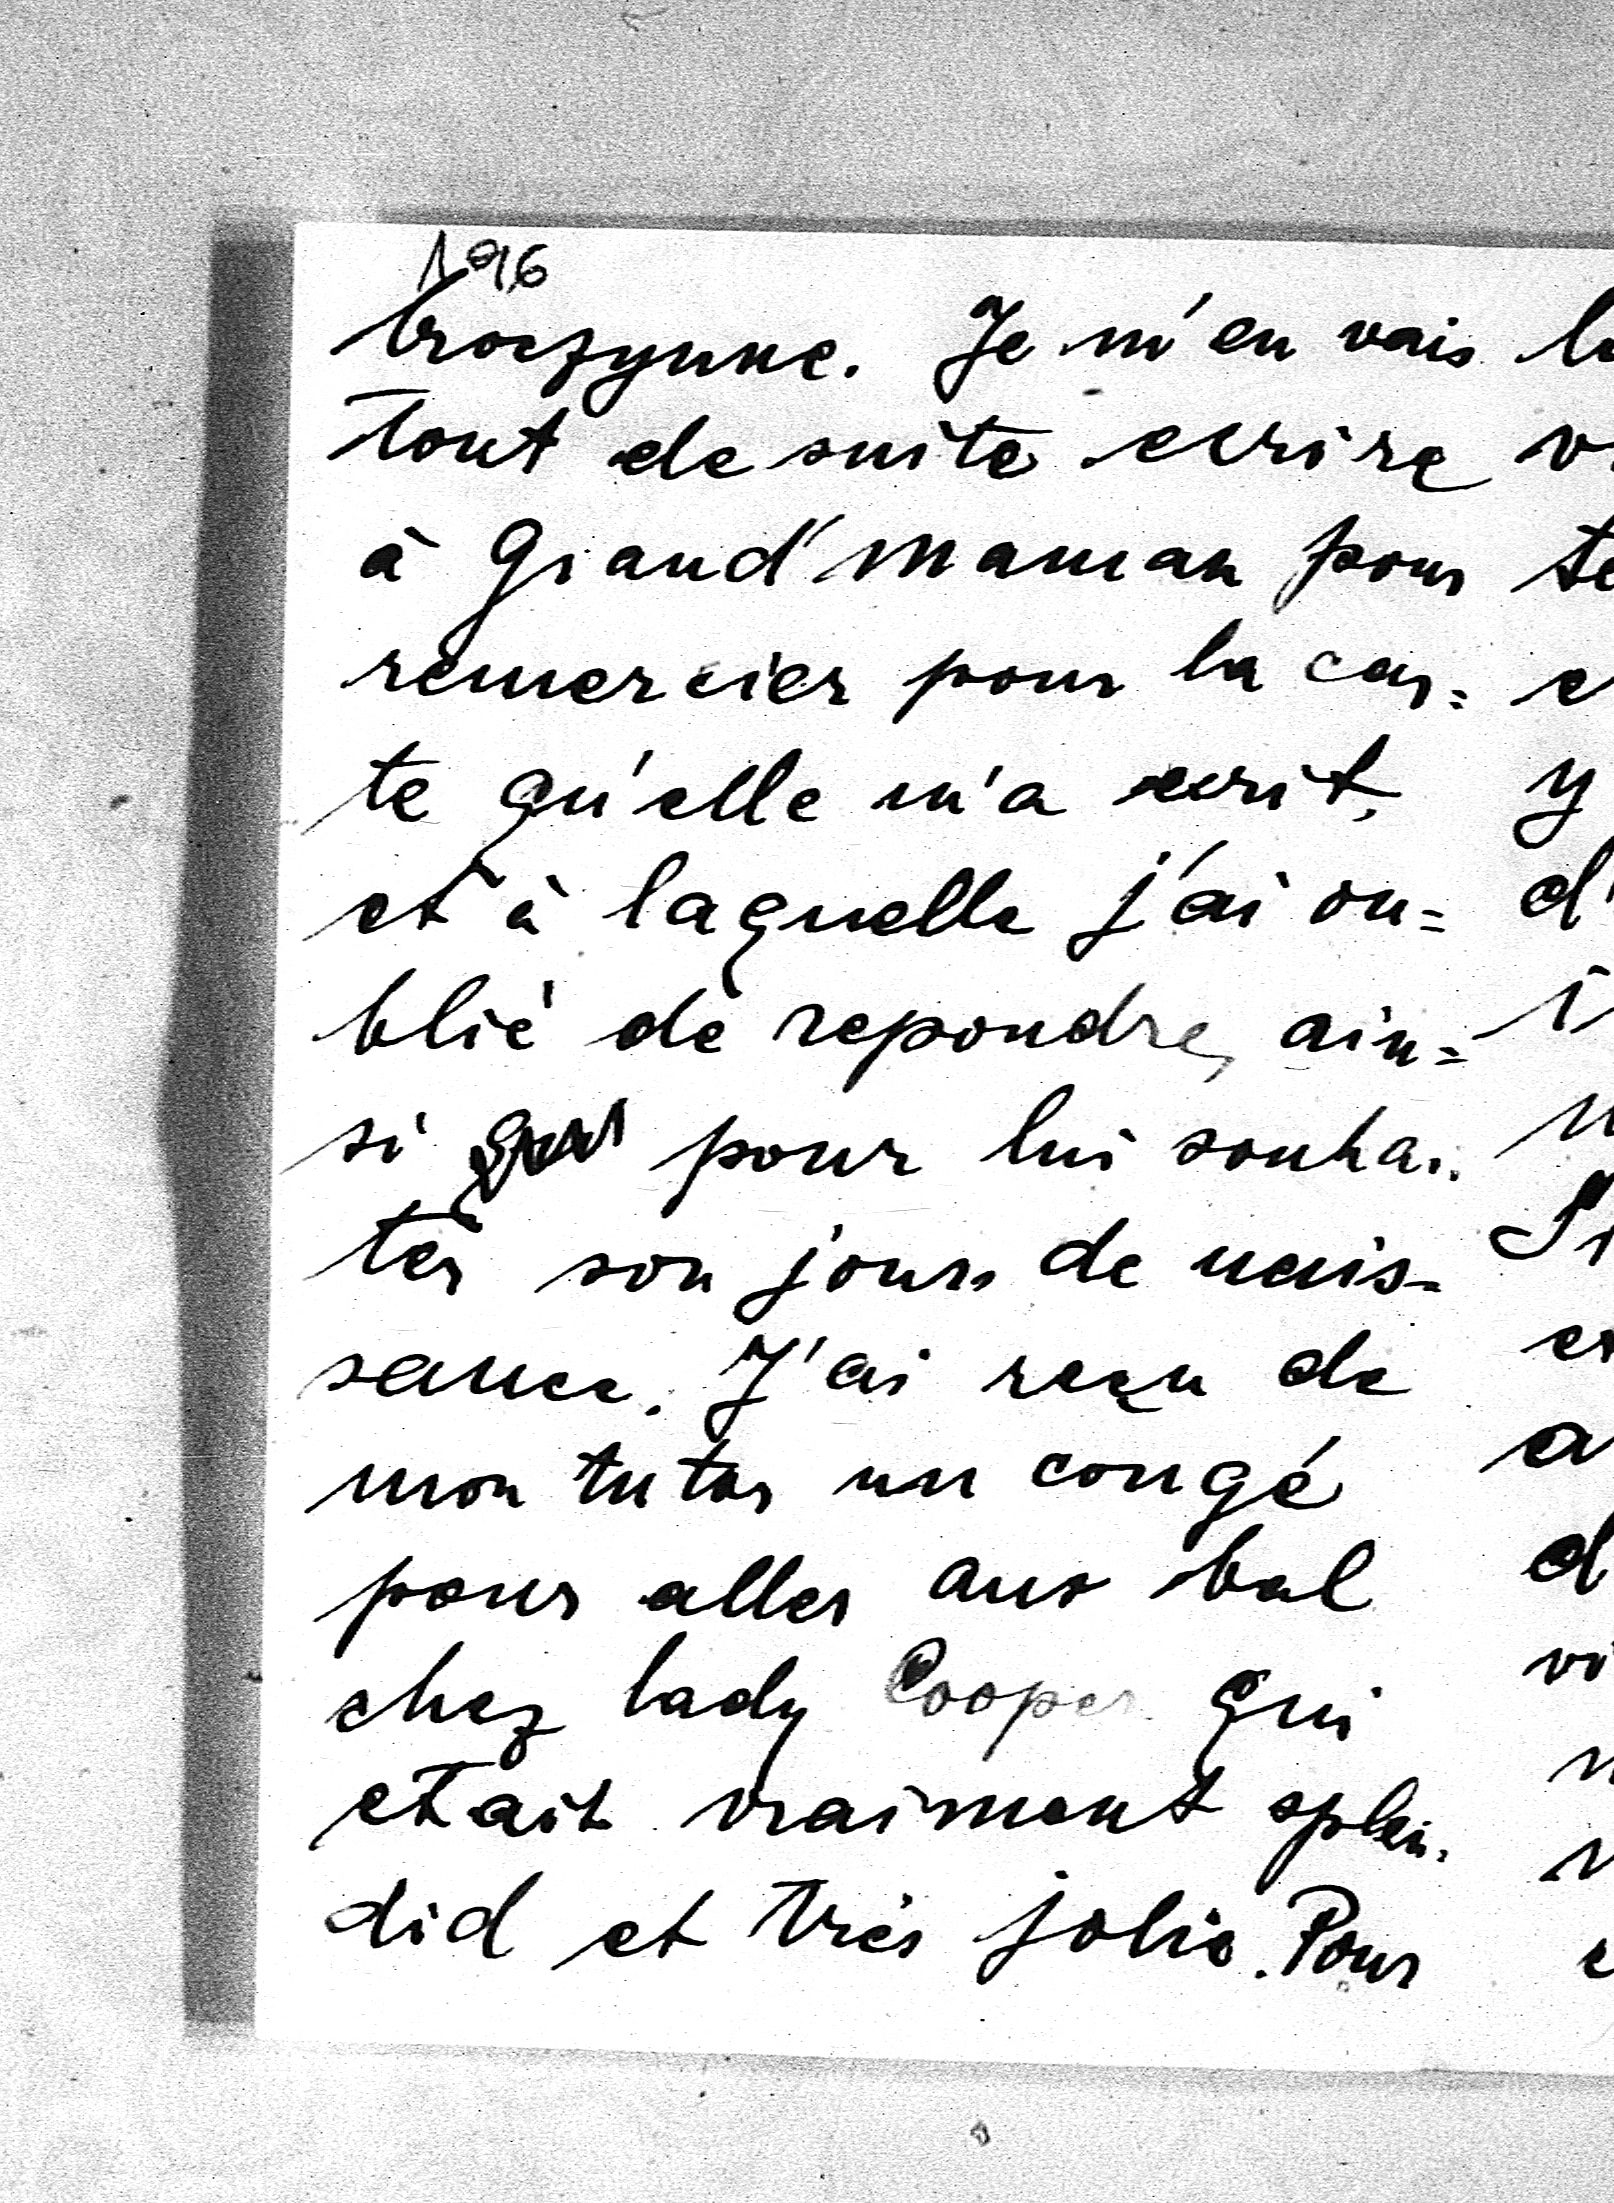 196
troczynne. Je m'en vais
tout de suite ecrire
à Grand'maman pour
remercier pour la car=
te qu'elle m'a ecrit,
et à laquelle j'ai ou=
blié de repondre, ain=
si pour lui souhai-
ter son jour de nais-
sance. J'ai reçu de
mon tutor un congé
pour aller aux bal
chez lady Cooper qui
etait vraiment splen-
did et très jolie. Pour